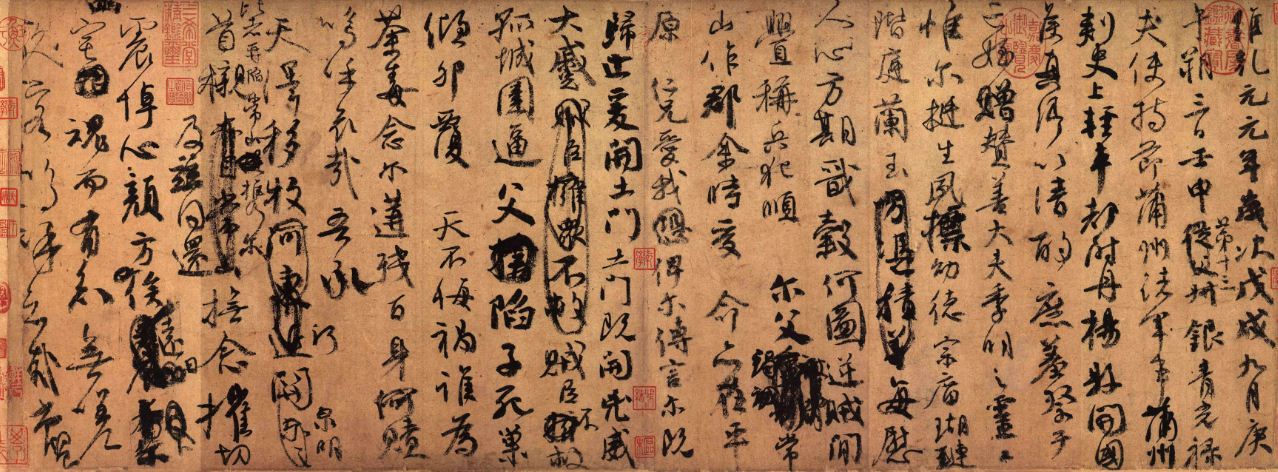 維乾元元年歲次戊戌九月庚
午朔三日壬申第十三從父叔銀青光祿
夫使持節蒲州諸軍事蒲州
刺史上輕車都尉丹楊縣開國
侯真卿以清酌庶羞祭于
亡姪贈贊善大夫季明之靈曰
惟爾挺生夙標幼德宗廟瑚璉
階庭蘭玉方憑積善每慰
人心方期戩穀何圖逆賊閒
釁稱兵犯順爾父竭誠常
山作郡余時受命亦在平
原仁兄愛我恐俾爾傳言爾既
歸止爰開土門土門既開凶威
大蹙賊臣擁眾不救賊臣不救
孤城圍逼父擒陷子死巢
傾卵覆天不悔禍誰為
荼毒念爾遘殘百身何贖
嗚乎哀哉吾承
天澤移牧河東近河關泉明
比者再陷常山攜爾
首櫬及茲同還撫念摧切
震悼心顏方俟遠日
宅魂而有知無嗟
久客嗚呼哀哉尚饗